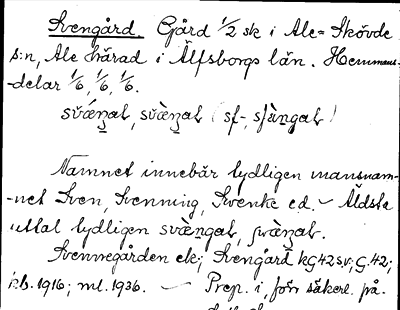 Svengård. Gård 1/2 sk i Ale-Skövde
s:n, Ale härad i Älfsborgs län. Hemmans-
-delar 1/6, 1/6, 1/6.
Namnet innebär tydligen mansnam-
-net Sven, Svenning, Svenke ed. ~ Äldsta
uttal tydligen
Svennegården ek; Svengård kG42sv; G.42;
i:b. 1916; ml. 1936. — Prep. i, förr säkerl. på.